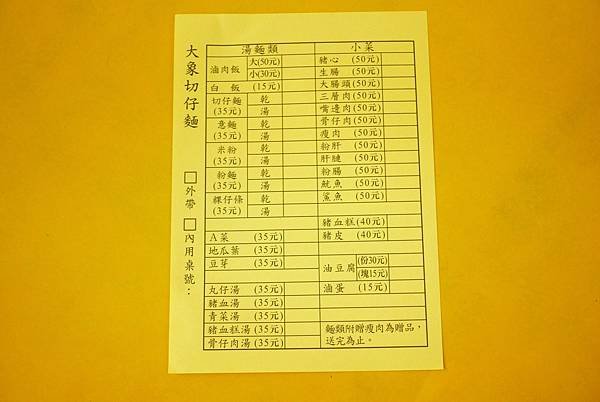 大象切仔麵
□外帶 □內用桌號：
湯麵類
滷肉飯 大(50元)
小(30元)
白飯 (15元)
切仔麵 (35元) 乾
湯
意麵 (35元) 乾
湯
米粉 (35元) 乾
湯
粉麵 (35元) 乾
湯
粿仔條 (35元) 乾
湯
A菜 (35元)
地瓜葉 (35元)
豆芽 (35元)
丸仔湯 (35元)
豬血湯 (35元)
青菜湯 (35元)
豬血糕湯 (35元)
骨仔肉湯 (35元)
小菜
豬心 (50元)
生腸 (50元)
大腸頭 (50元)
三層肉 (50元)
嘴邊肉 (50元)
骨仔肉 (50元)
瘦肉 (50元)
粉肝 (50元)
肝膁 (50元)
粉腸 (50元)
魷魚 (50元)
鯊魚 (50元)
豬血糕 (40元)
豬皮 (40元)
油豆腐 (份30元)
(塊15元)
滷蛋 (15元)
麵類附贈瘦肉為贈品，
送完為止。